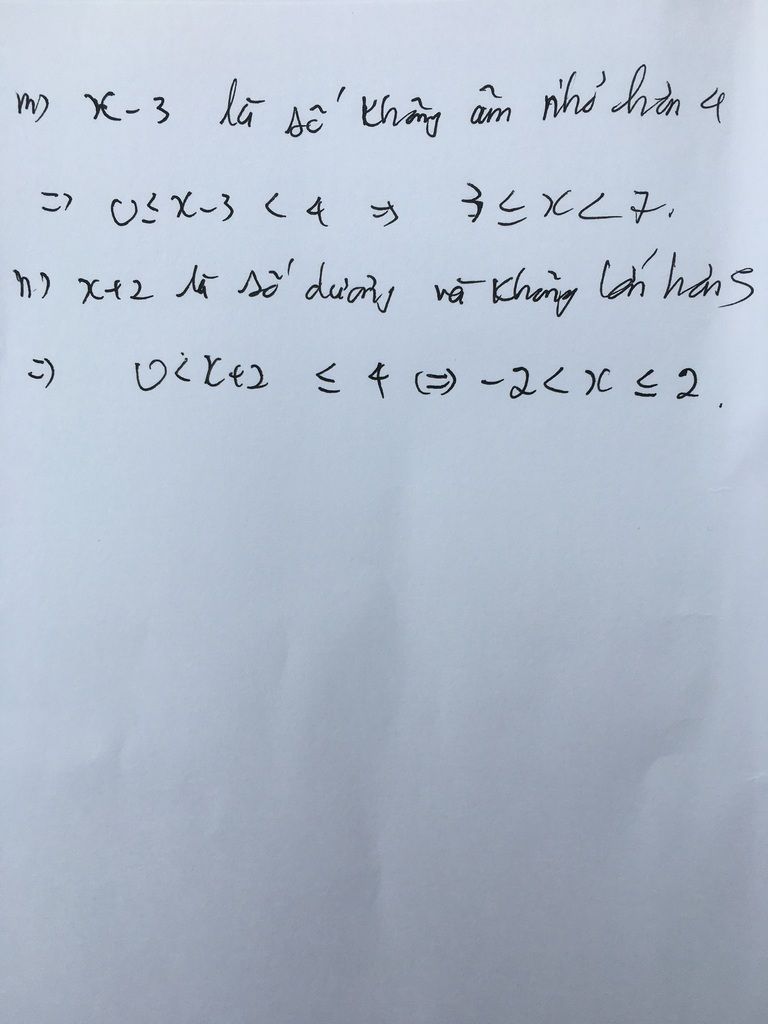 m) x-3 là số không âm nhỏ hơn 4
=> 0≤x-3 < 4 => 3 ≤ x < 7.
n) x+2 là số dương và không lớn hơn 5
=> 0<x+2 ≤ 4 (=> -2 < x ≤ 2.